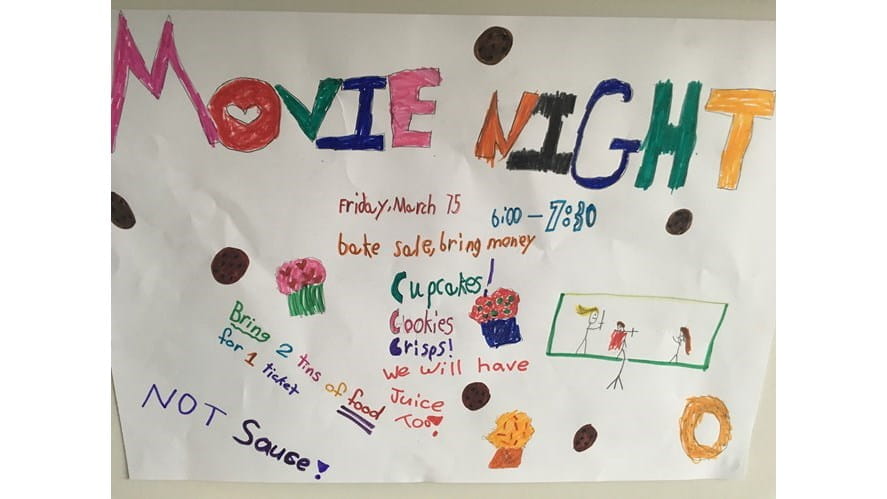 MOVIE NIGHT
Friday, March 15
6:00 - 7:30
bake sale, bring money
Cupcakes!
Cookies
Crisps!
We will have
Juice
Too!
Bring 2 tins of food
for 1 ticket
NOT Sauce!